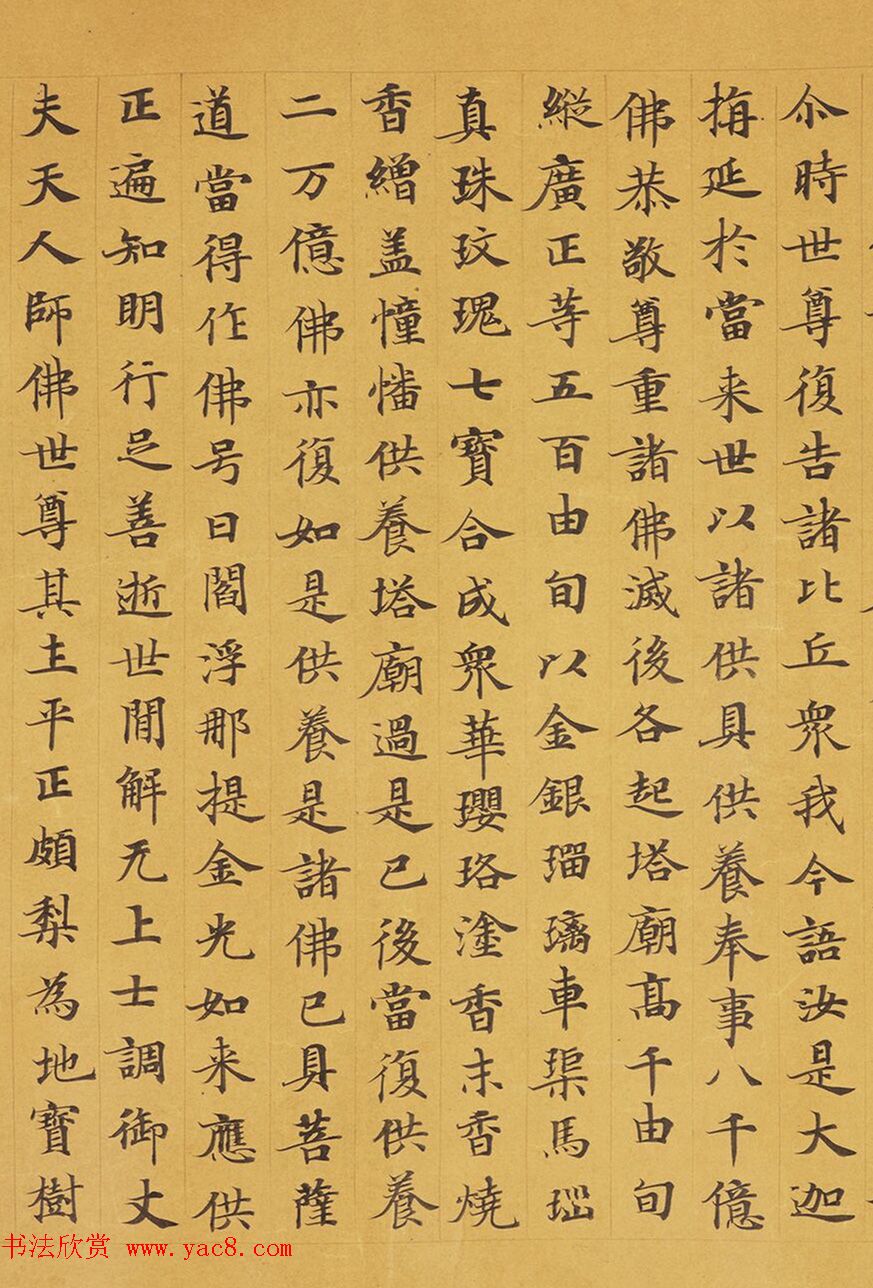 尒時世尊復告諸比丘衆我今語汝是大迦
旃延於當来世以諸供具供養奉事八千億
佛恭敬尊重諸佛滅後各起塔廟髙千由旬
縱廣正等五百由旬以金銀瑠璃車磲馬瑙
真珠玫瑰七寶合成衆華瓔珞塗香末香燒
香繒盖幢幡供養塔廟過是已後當復供養
二万億佛亦復如是供養是諸佛已具菩薩
道當得作佛号曰閻浮那提金光如来應供
正遍知明行足善逝世間解无上士調御丈
夫天人師佛世尊其土平正頗梨為地寶樹
书法欣赏 www.yac8.com